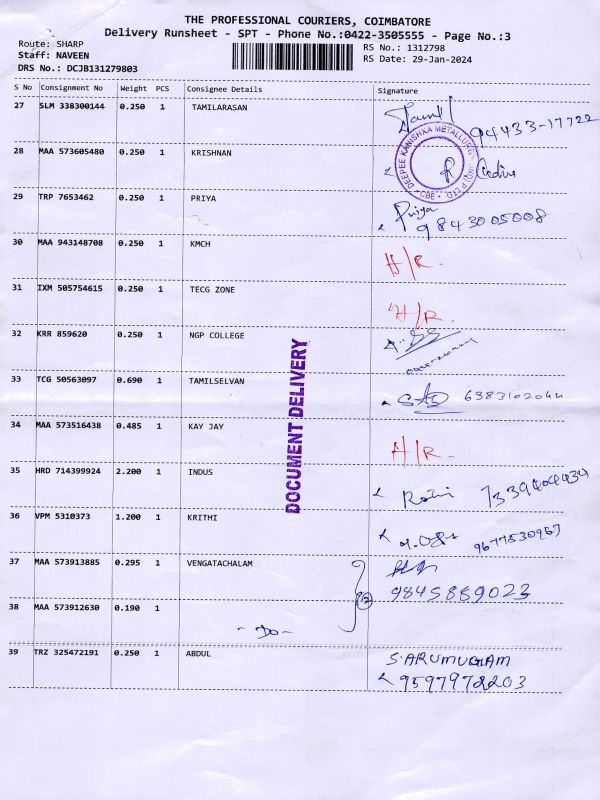 THE PROFESSIONAL COURIERS, COIMBATORE
Delivery Runsheet - SPT - Phone No.:0422-3505555 - Page No.:3
Route: SHARP
RS No.: 1312798
Staff: NAVEEN
RS Date: 29-Jan-2024
DRS No.: DCJB131279803
S No Consignment No Weight PCS Consignee Details Signature
27 SLM 338300144 0.250 1 TAMILARASAN Tamil 94433-17722
DEEPEE KANISHKA METALLURGY (IND) P LTD. CBE
28 MAA 573605480 0.250 1 KRISHNAN
29 TRP 7653462 0.250 1 PRIYA Priya
9843005008
30 MAA 943148708 0.250 1 KMCH H/R.
31 IXM 505754615 0.250 1 TECG ZONE H/R.
32 KRR 859620 0.250 1 NGP COLLEGE
DOCUMENT DELIVERY
33 TCG 50563097 0.690 1 TAMILSELVAN 6383102044
34 MAA 573516438 0.485 1 KAY JAY H/R.
35 HRD 714399924 2.200 1 INDUS 7339404434
36 VPM 5310373 1.200 1 KRITHI 9677530967
37 MAA 573913885 0.295 1 VENGATACHALAM
9845889023
38 MAA 573912630 0.190 1
- Do -
39 TRZ 325472191 0.250 1 ABDUL S.ARUMUGAM
9597972203